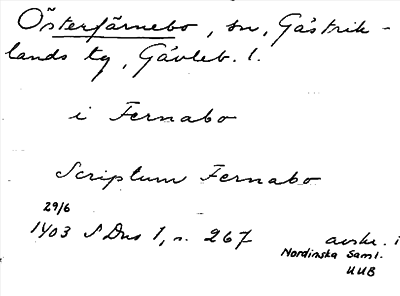 Österfärnebo, sn, Gästrik-
lands tg, Gävleb. l.
i Fernabo
Scriptum Fernabo
29/6
1403 SDns 1, n. 267 avskr. i
Nordinska Saml.
UUB